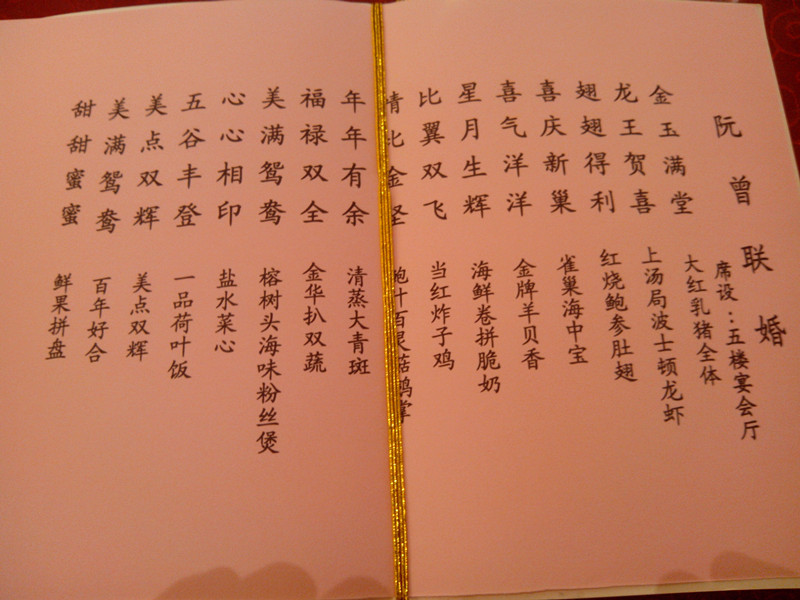 阮曾联婚
席设：五楼宴会厅
金玉满堂 大红乳猪全体
龙王贺喜 上汤局波士顿龙虾
翅翅得利 红烧鲍参肚翅
喜庆新巢 雀巢海中宝
喜气洋洋 金牌羊贝香
星月生辉 海鲜卷拼脆奶
比翼双飞 当红炸子鸡
情比金坚 鲍汁百灵菇鹅掌
年年有余 清蒸大青斑
福禄双全 金华扒双蔬
美满鸳鸯 榕树头海味粉丝煲
心心相印 盐水菜心
五谷丰登 一品荷叶饭
美点双辉 美点双辉
美满鸳鸯 百年好合
甜甜蜜蜜 鲜果拼盘